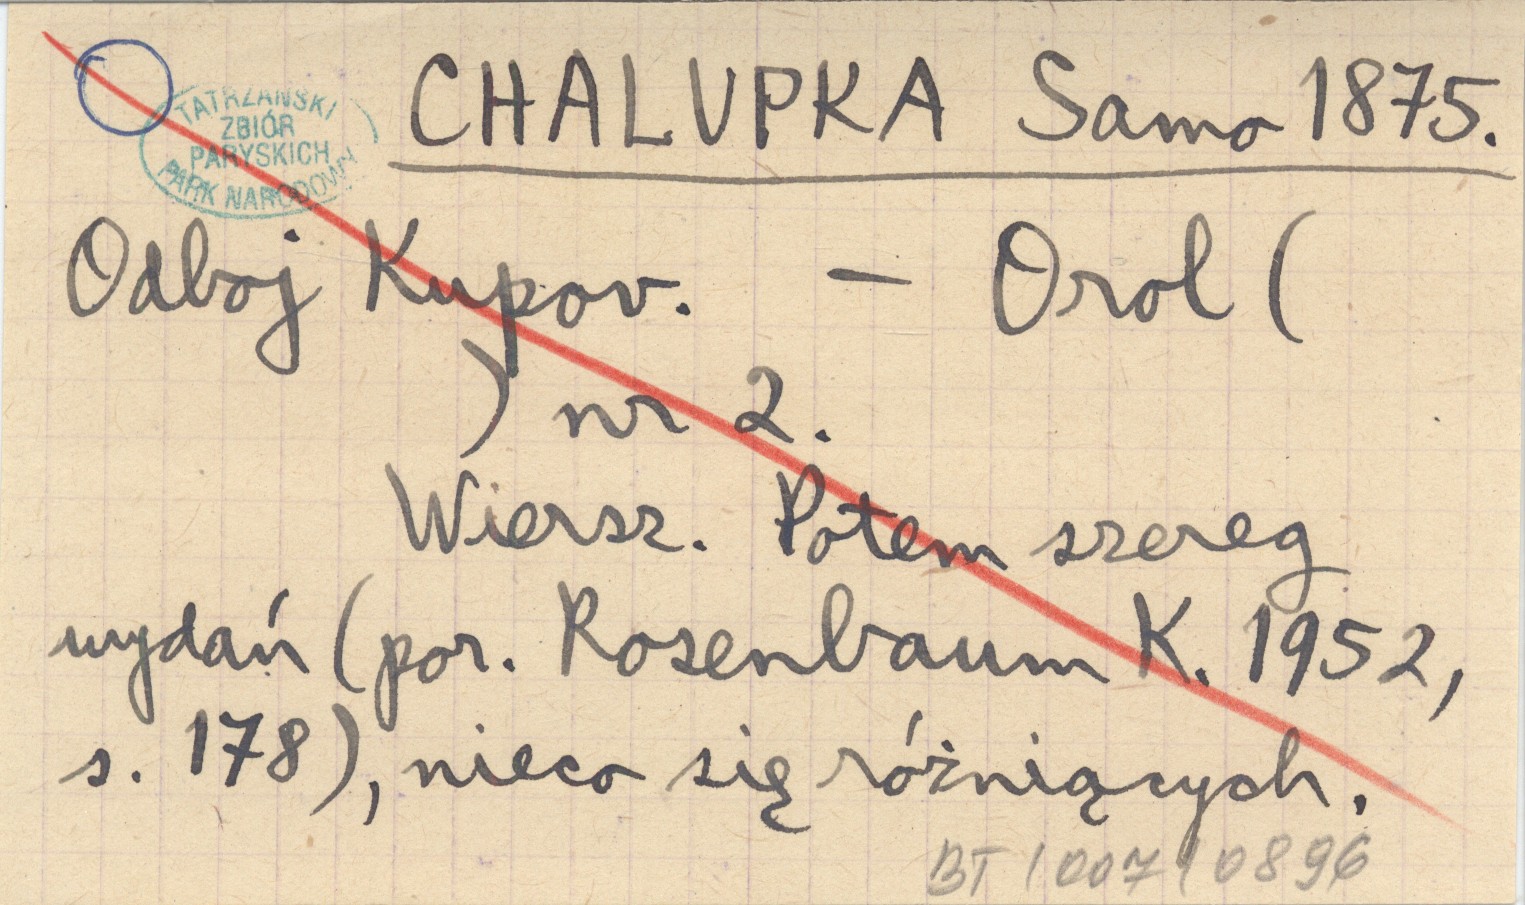 TATRZAŃSKI
ZBIÓR
PARYSKICH
PARK NARODOWY
CHALUPKA Samo 1875.
Odboj Kupov. — Orol (
) nr 2.
Wiersz. Potem szereg
wydań (por. Rosenbaum K. 1952,
s. 178), nieco się różniących.
BT / 007 / 0896